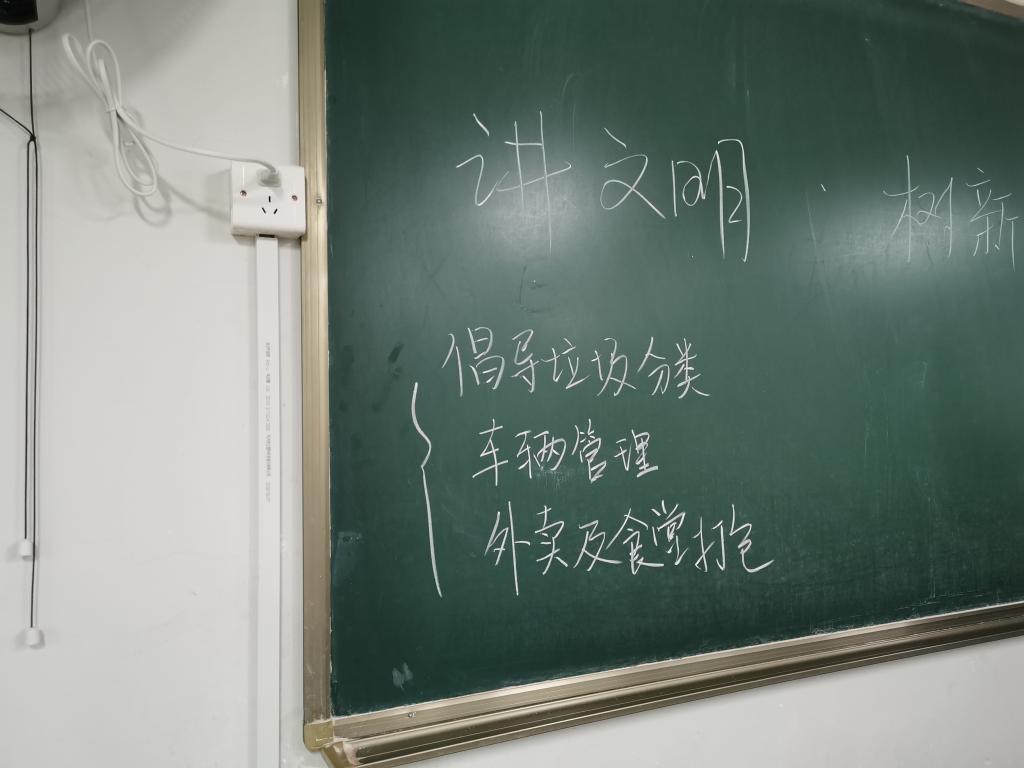 讲文明 树新
倡导垃圾分类
车辆管理
外卖及食堂打包